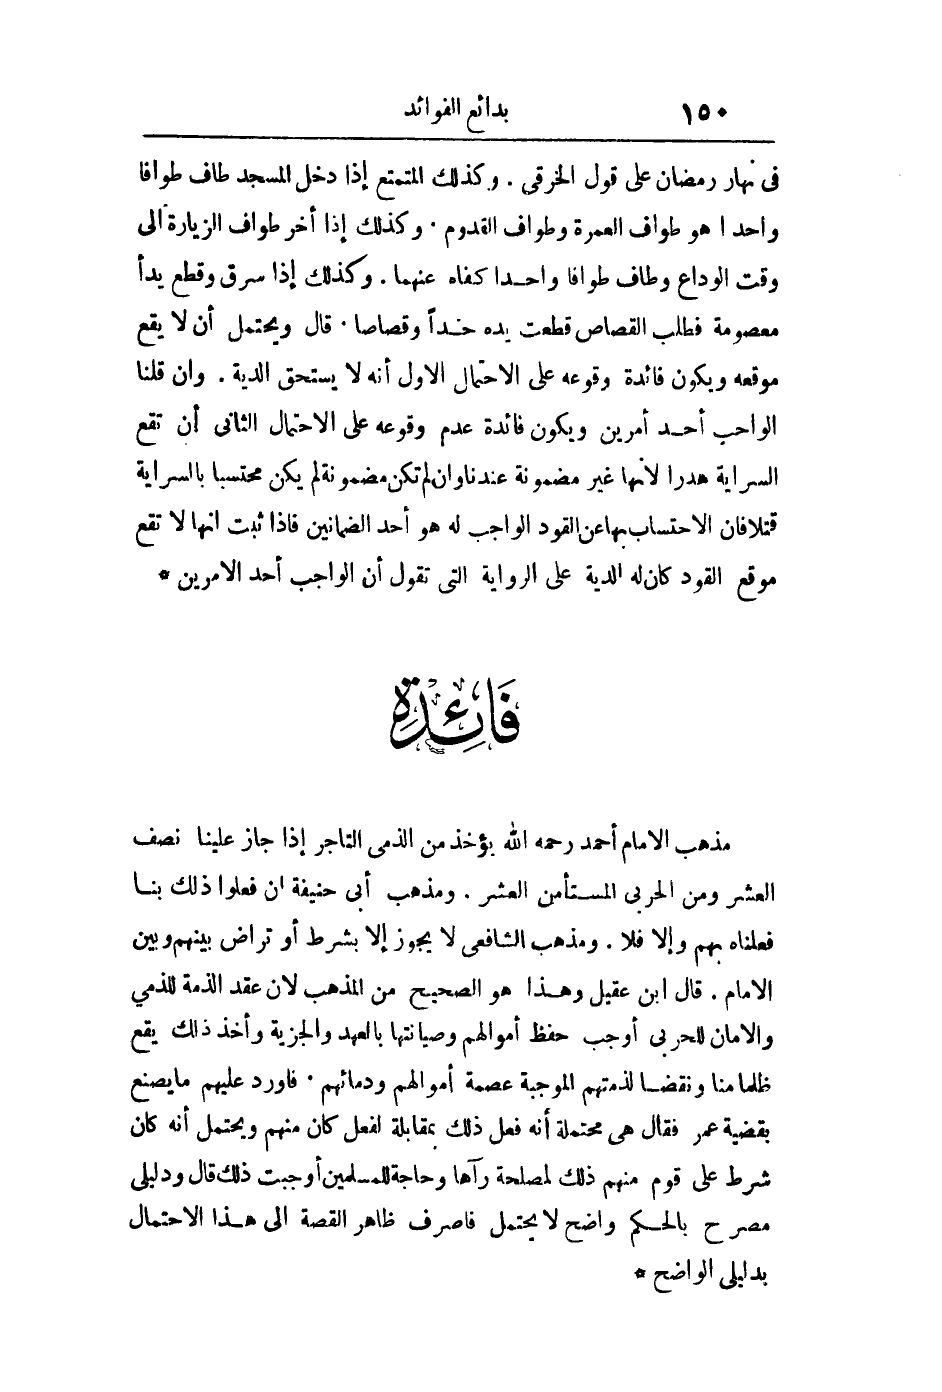 ١٥٠ بدائع الفوائد
فى نهار رمضان على قول الخرقي . وكذلك المتمتع إذا دخل المسجد طاف طوافا
واحدا هو طواف العمرة وطواف القدوم . وكذلك إذا أخر طواف الزيارة الى
وقت الوداع وطاف طوافا واحدا كفاه عنهما . وكذلك إذا سرق وقطع يدأ
معصومة فطلب القصاص قطعت يده حداً وقصاصا . قال ويحتمل أن لا يقع
موقعه ويكون فائدة وقوعه على الاحتمال الاول أنه لا يستحق الدية . وان قلنا
الواجب أحد أمرين ويكون فائدة عدم وقوعه على الاحتمال الثانى أن تقع
السراية هدرا لأنها غير مضمونة عندنا وان لم تكن مضمونة لم يكن محتسبا بالسراية
قتلا فان الاحتساب بها عن القود الواجب له هو أحد الضمانين فاذا ثبت انها لا تقع
موقع القود كان له الدية على الرواية التى تقول أن الواجب أحد الامرين *
فَائِدَة
مذهب الامام أحمد رحمه الله يؤخذ من الذمى التاجر إذا جاز علينا نصف
العشر ومن الحربى المستأمن العشر . ومذهب أبى حنيفة ان فعلوا ذلك بنا
فعلناه بهم وإلا فلا . ومذهب الشافعى لا يجوز إلا بشرط أو تراض بينهم وبين
الامام . قال ابن عقيل وهذا هو الصحيح من المذهب لان عقد الذمة للذمي
والامان للحربى أوجب حفظ أموالهم وصيانتها بالعهد والجزية وأخذ ذالك يقع
ظلما منا ونقضا لذمتهم الموجبة عصمة أموالهم ودمائهم . فاورد عليهم مايصنع
بقضية عمر فقال هى محتملة أنه فعل ذلك بمقابلة لفعل كان منهم ويحتمل أنه كان
شرط على قوم منهم ذلك لمصلحة رآها وحاجة للمسلمين أوجبت ذلك قال ودليلى
مصرح بالحكم واضح لا يحتمل فاصرف ظاهر القصة الى هذا الاحتمال
بدليلى الواضح *